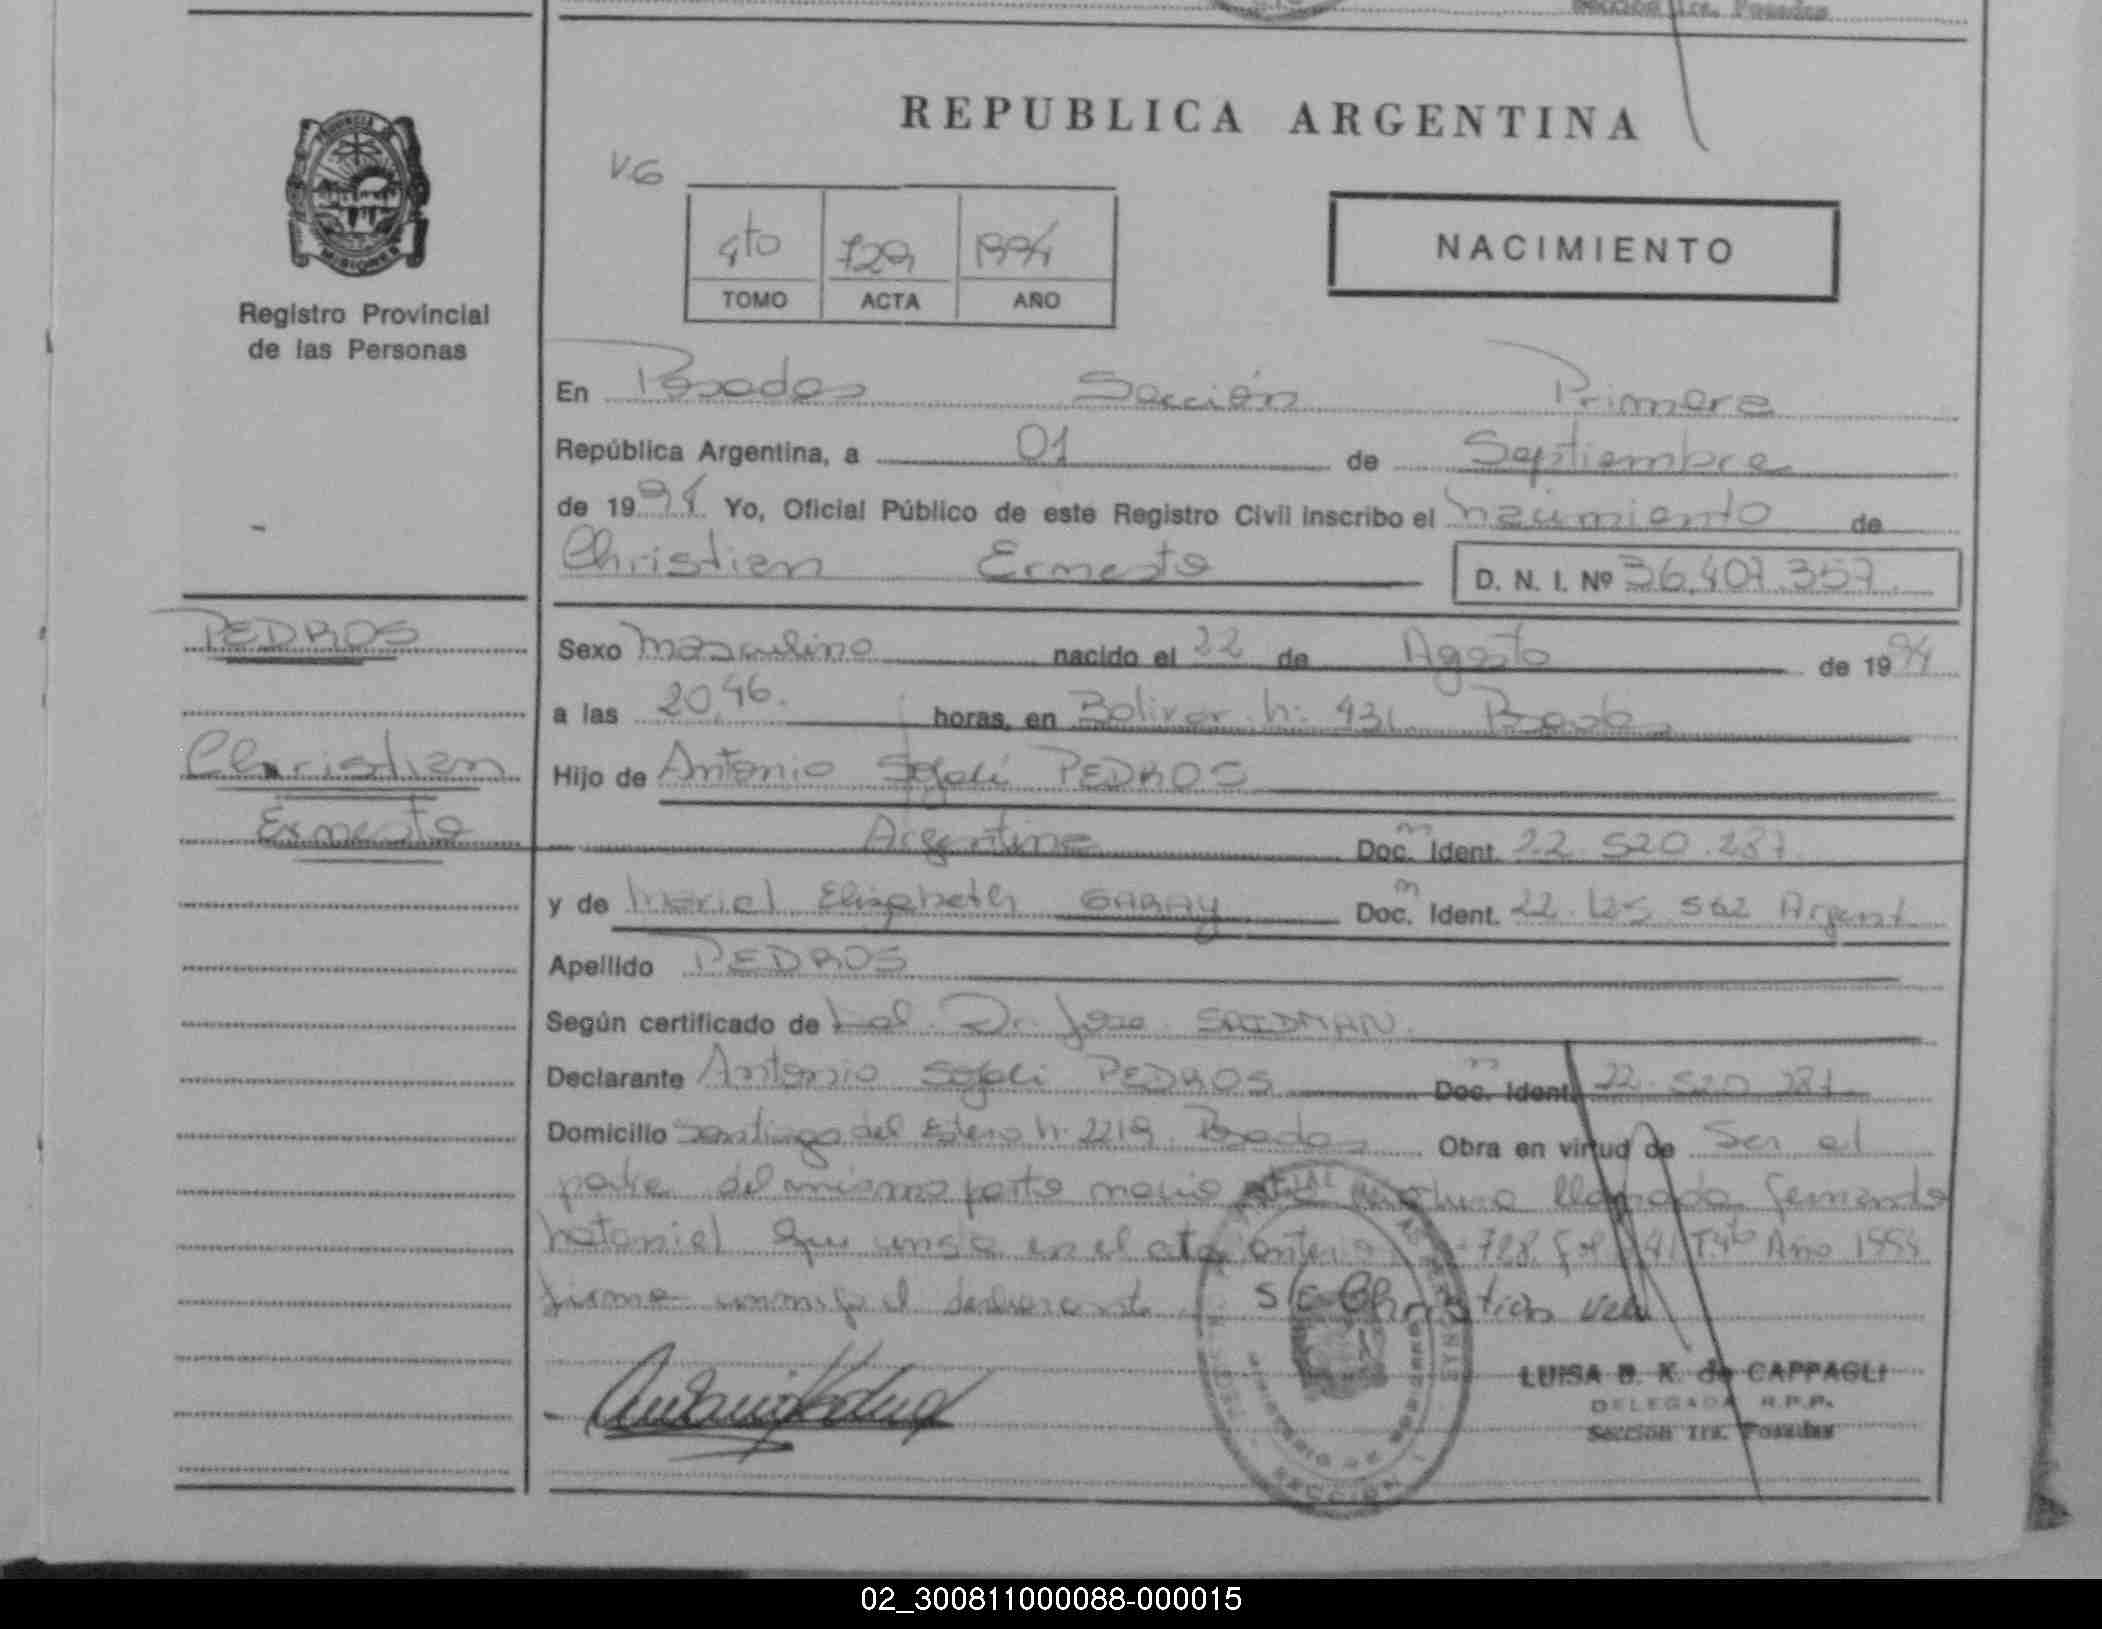 Sección 1ra. Posadas
REPUBLICA ARGENTINA
V6
4to 729 1994
TOMO ACTA AÑO
NACIMIENTO
PROVINCIA DE
MISIONES
Registro Provincial
de las Personas
En Posadas Sección Primera
República Argentina, a 01 de Septiembre
de 1994 Yo, Oficial Público de este Registro Civil inscribo el nacimiento de
Christian Ernesto D. N. I. Nº 36.407.357
PEDROS
Christian
Ernesto
Sexo Masculino nacido el 22 de Agosto de 1994
a las 20,46. horas, en Bolivar n: 431. Posadas
Hijo de Antonio PEDROS
Argentino Doc. Ident. 22.520.287
m
y de Mariel Elizabeth GARAY Doc. Ident. 22. 562 Argent
m
Apellido PEDROS
Según certificado de Dr. Jose SAIDMAN.
Declarante Antonio PEDROS Doc. Ident. 22.520.287
m
Domicilio Santiago del Estero n: 2219. Posadas Obra en virtud de Ser el
padre del mismo parto llamada Fernando
Nataniel que en el acta 728 T4to Año 1994
firma conmigo el declarante S/E Christian Vale
LUISA B. K. de CAPPAGLI
DELEGADA R.P.P.
Sección 1ra. Posadas
02_300811000088-000015